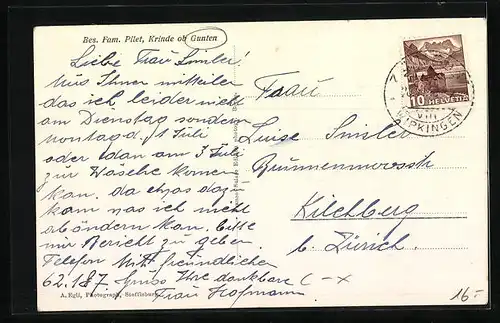 Bes. Fam. Pilet, Krinde ob Gunten
Liebe Frau Sinsler!
Mus Ihnen mitteilen
das ich leider nicht
am Dienstag sondern
montag d. 1 Juli
oder dan am 3 Juli
zur Wäsche komen
kan. da etwas dazu
kam was ich nicht
abändern kan. bitte
mir Bericht zu geben.
Telefon Mit freundlichen
62.187 Gruss Ihre dankbare
Frau Hofmann
A. Egli, Photograph, Steffisburg
Frau
Luise Sinsler
Kilchberg
b. Zürich.
10 HELVETIA
WIPKINGEN
VIII
16.-